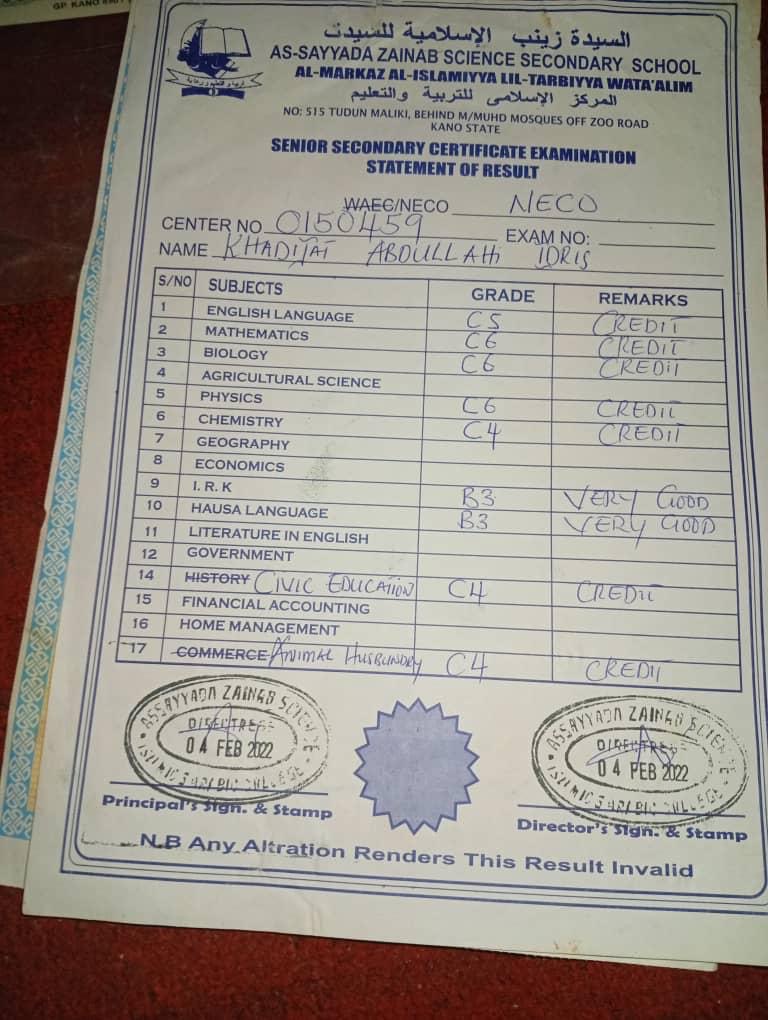 GP. KANO
السيدة زينب الإسلامية للسيدت
AS-SAYYADA ZAINAB SCIENCE SECONDARY SCHOOL
AL-MARKAZ AL-ISLAMIYYA LIL-TARBIYYA WATA'ALIM
المركز الإسلامى للتربية والتعليم
NO: 515 TUDUN MALIKI, BEHIND M/MUHD MOSQUES OFF ZOO ROAD
KANO STATE
SENIOR SECONDARY CERTIFICATE EXAMINATION
STATEMENT OF RESULT
WAEC/NECO NECO
CENTER NO 0150459 EXAM NO:
NAME KHADIJAT ABDULLAHI IDRIS
S/NO SUBJECTS GRADE REMARKS
1 ENGLISH LANGUAGE C5 CREDIT
2 MATHEMATICS C6 CREDIT
3 BIOLOGY C6 CREDIT
4 AGRICULTURAL SCIENCE
5 PHYSICS C6 CREDIT
6 CHEMISTRY C4 CREDIT
7 GEOGRAPHY
8 ECONOMICS
9 I. R. K B3 VERY GOOD
10 HAUSA LANGUAGE B3 VERY GOOD
11 LITERATURE IN ENGLISH
12 GOVERNMENT
14 HISTORY CIVIC EDUCATION C4 CREDIT
15 FINANCIAL ACCOUNTING
16 HOME MANAGEMENT
17 COMMERCE ANIMAL HUSBUNDRY C4 CREDIT
ASSAYYADA ZAINAB SCIENCE
DIRECTRESS
04 FEB 2022
ISLAMIC & ARABIC COLLEGE
Principal's Sign. & Stamp
ASSAYYADA ZAINAB SCIENCE
DIRECTRESS
04 FEB 2022
ISLAMIC & ARABIC COLLEGE
Director's Sign. & Stamp
N.B Any Altration Renders This Result Invalid